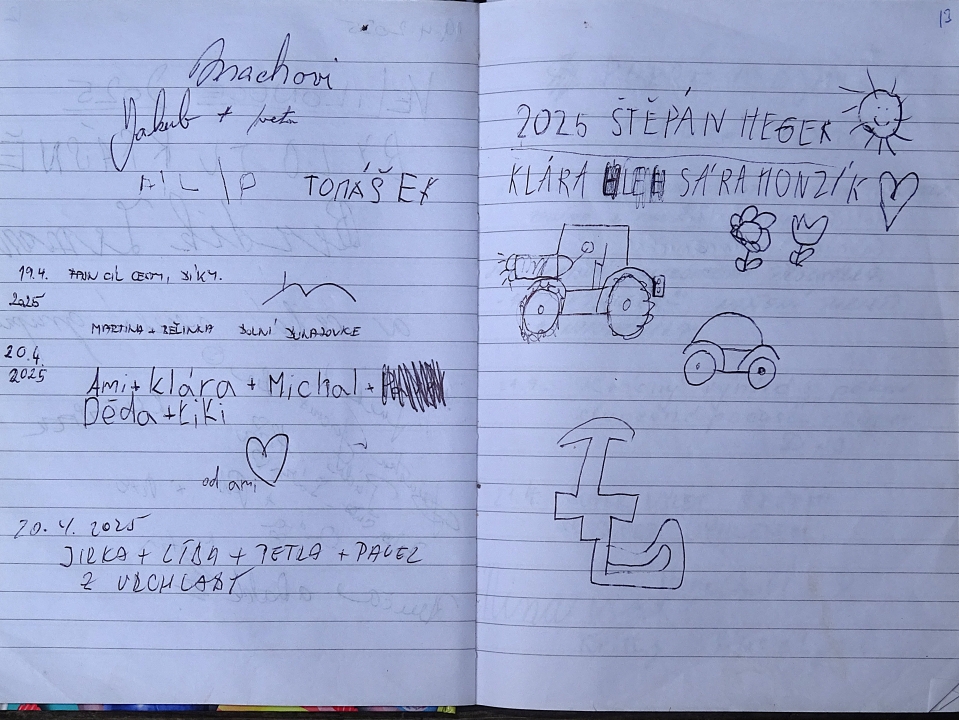 Machovi
Jakub + Iveta
FILIP TOMÁŠEK
19.4. FAJN CÍL CESTY, DÍKY.
2025
MARTINA + BEŠINKA DOLNÍ DUNAJOVICE
20.4.
2025
Ami + klára + Michal +
Děda + Kiki
od ami
20. 4. 2025
JIRKA + LÍBA + PETRA + PAVEL
Z VRCHLABÍ
13
2025 ŠTĚPÁN HEGER
KLÁRA SÁRA HONZÍK